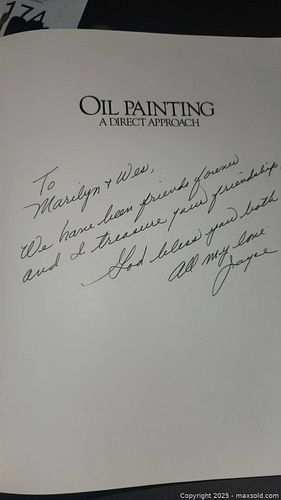 174
OIL PAINTING
A DIRECT APPROACH
To
Marilyn + Wes,
We have been friends forever
and I treasure your friendship
God bless you both
All my love
Joyce
Copyright 2025 - maxsold.com